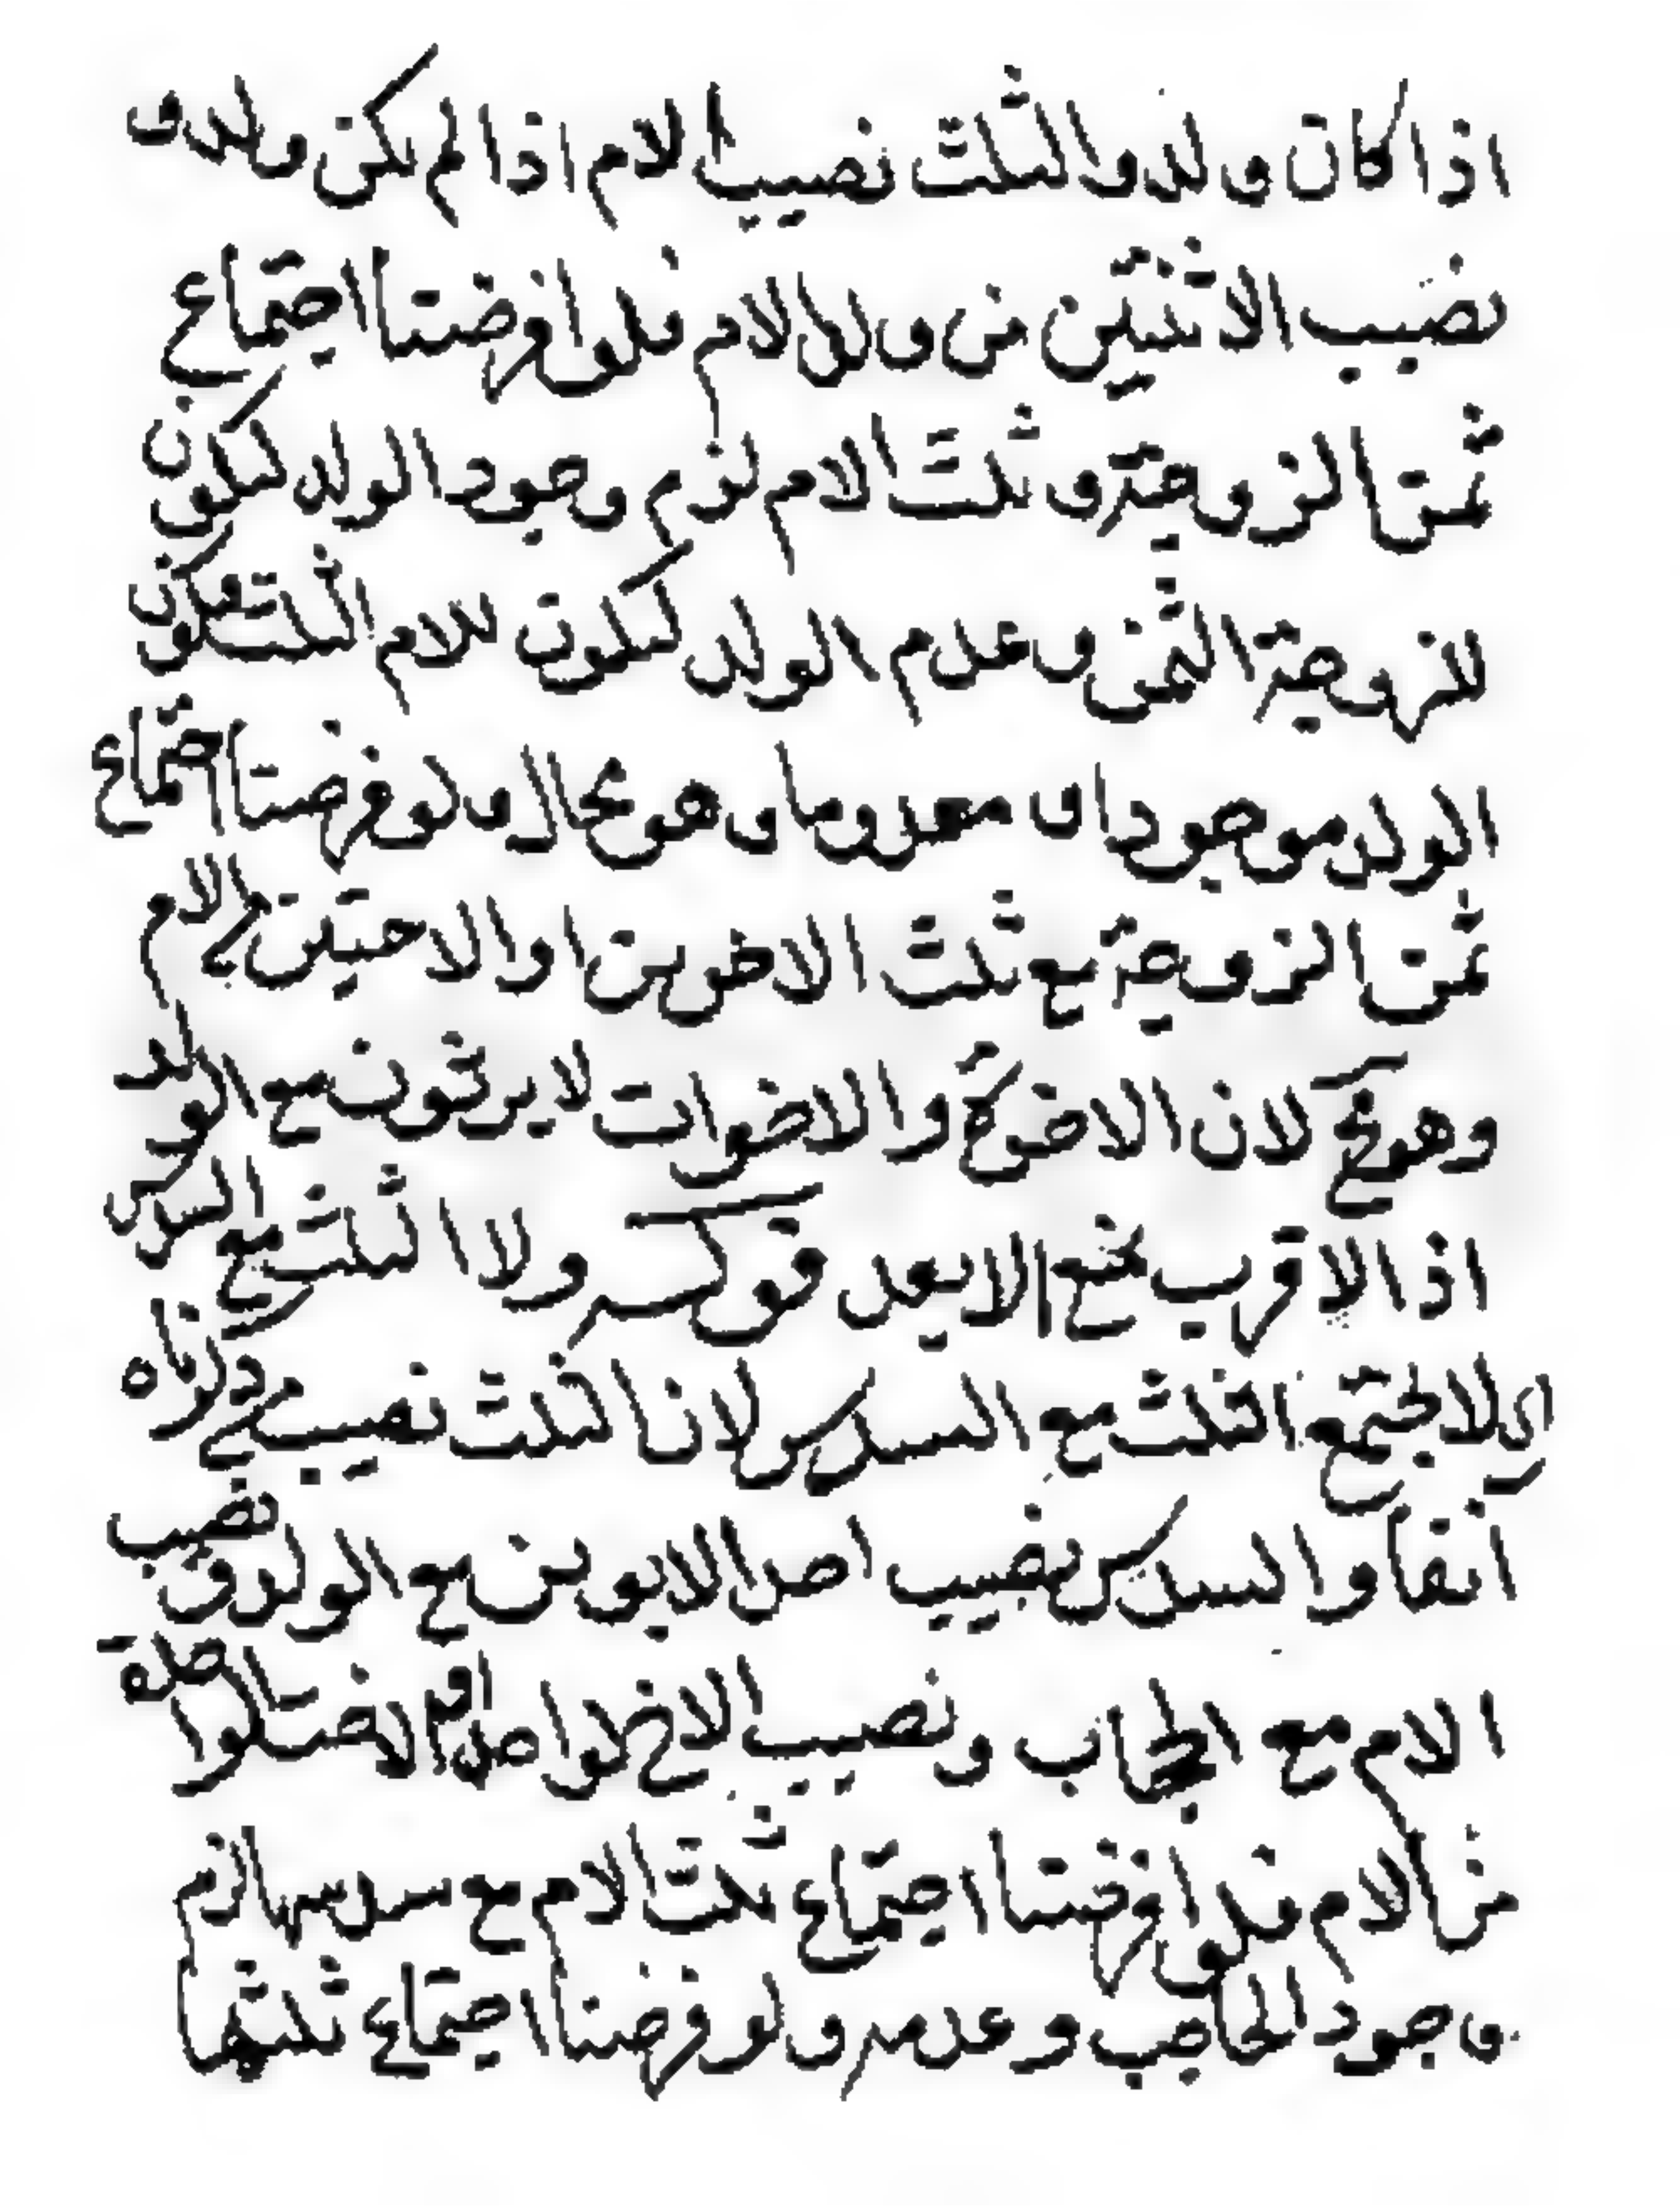 اذا كان ولد والثلث نصيب الام اذا لم يكن ولد و
نصيب الاثنين من ولد الام فلو فرضنا اجتماع
ثمن الزوجة و ثلث الام لزم وجود الولد ليكون
للزوجة الثمن و عدم الولد ليكون للام الثلث فيكون
الولد موجودا و معدوما وهو محال ولو فرضنا اجتماع
ثمن الزوجة مع ثلث الاخوين او الاختين لام
وهو مح لان الاخوة والاخوات لا يرثون مع الولد
اذ الاقرب يمنع الابعد قوله ولا الثلث مع السدس
اى لا يجتمع الثلث مع السدس لان الثلث نصيب من ذكرناه
انفا والسدس نصيب احد الابوين مع الولد و نصيب
الام مع الحاجب ونصيب الاخ الواحد او الاخت الواحدة
من الام فلو فرضنا اجتماع ثلث الام مع سدسها لزم
وجود الحاجب وعدمه ولو فرضنا اجتماع ثلثها